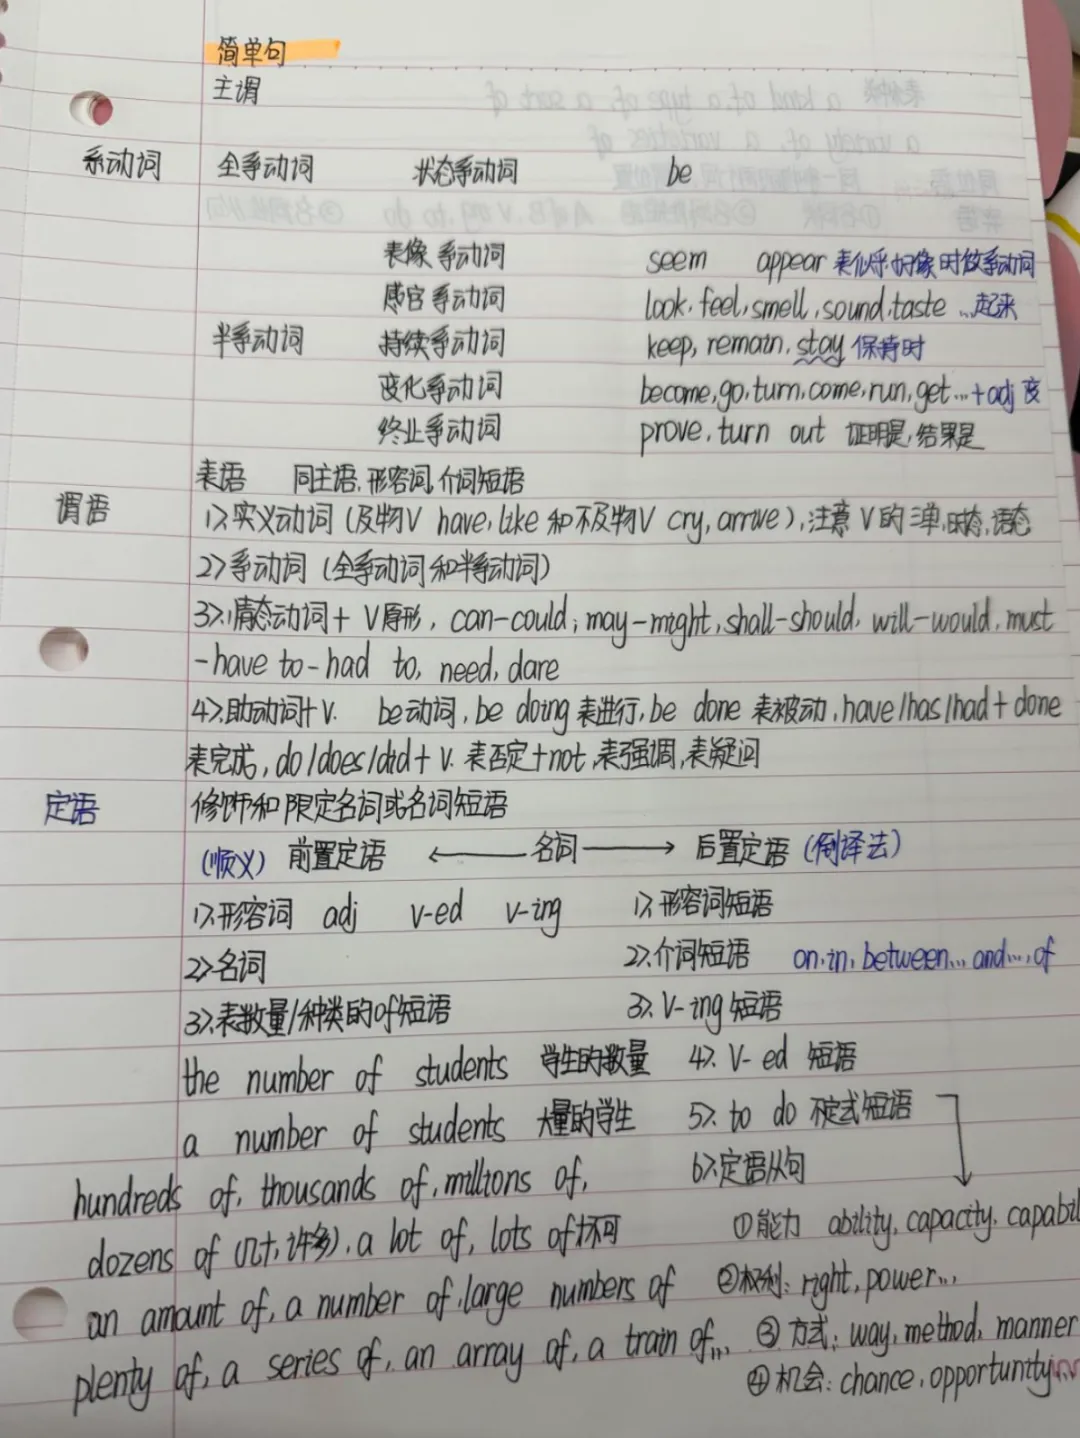 简单句
主谓
系动词 全系动词 状态系动词 be
表像系动词 seem appear 表似乎,好像时做系动词
感官系动词 look,feel,smell,sound,taste ...起来
半系动词 持续系动词 keep, remain, stay 保持时
变化系动词 become,go,turn,come,run,get...+adj 变
终止系动词 prove, turn out 证明是,结果是
表语 同主语,形容词,介词短语
谓语 1>实义动词(及物V have, like 和不及物V cry, arrive),注意V的三单,时态,语态
2>系动词(全系动词和半系动词)
3>.情态动词+ V原形, can-could; may-might, shall-should, will-would, must
-have to-had to, need, dare
4>.助动词+V. be动词, be doing 表进行, be done 表被动, have/has/had+done
表完成, do/does/did+ V. 表否定+not,表强调,表疑问
定语 修饰和限定名词或名词短语
(顺义) 前置定语 ← 名词 → 后置定语 (倒译法)
1>.形容词 adj v-ed v-ing 1>.形容词短语
2>名词 2>.介词短语 on,in, between... and..., of
3>.表数量/种类的of短语 3>. V-ing 短语
the number of students 学生的数量 4>. V-ed 短语
a number of students 大量的学生 5>. to do 不定式短语
hundreds of, thousands of, millions of, 6>.定语从句
dozens of (几十,许多), a lot of, lots of ①能力 ability, capacity, capabil
an amount of, a number of, large numbers of ②权利: right, power...,
plenty of, a series of, an array of, a train of... ③方式: way, method, manner
④机会: chance, opportunity